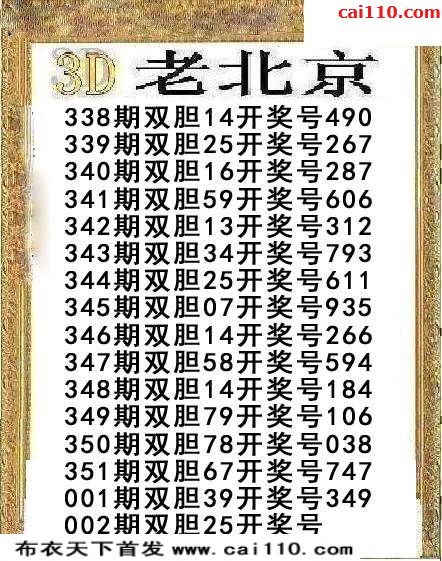 cai110.com
3D 老北京
338期双胆14开奖号490
339期双胆25开奖号267
340期双胆16开奖号287
341期双胆59开奖号606
342期双胆13开奖号312
343期双胆34开奖号793
344期双胆25开奖号611
345期双胆07开奖号935
346期双胆14开奖号266
347期双胆58开奖号594
348期双胆14开奖号184
349期双胆79开奖号106
350期双胆78开奖号038
351期双胆67开奖号747
001期双胆39开奖号349
002期双胆25开奖号
布衣天下首发 www.cai110.com